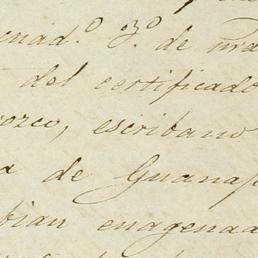 enad.º 3.º de nra
del certificado
ozco, escribano
a de Guana
bian enagenad